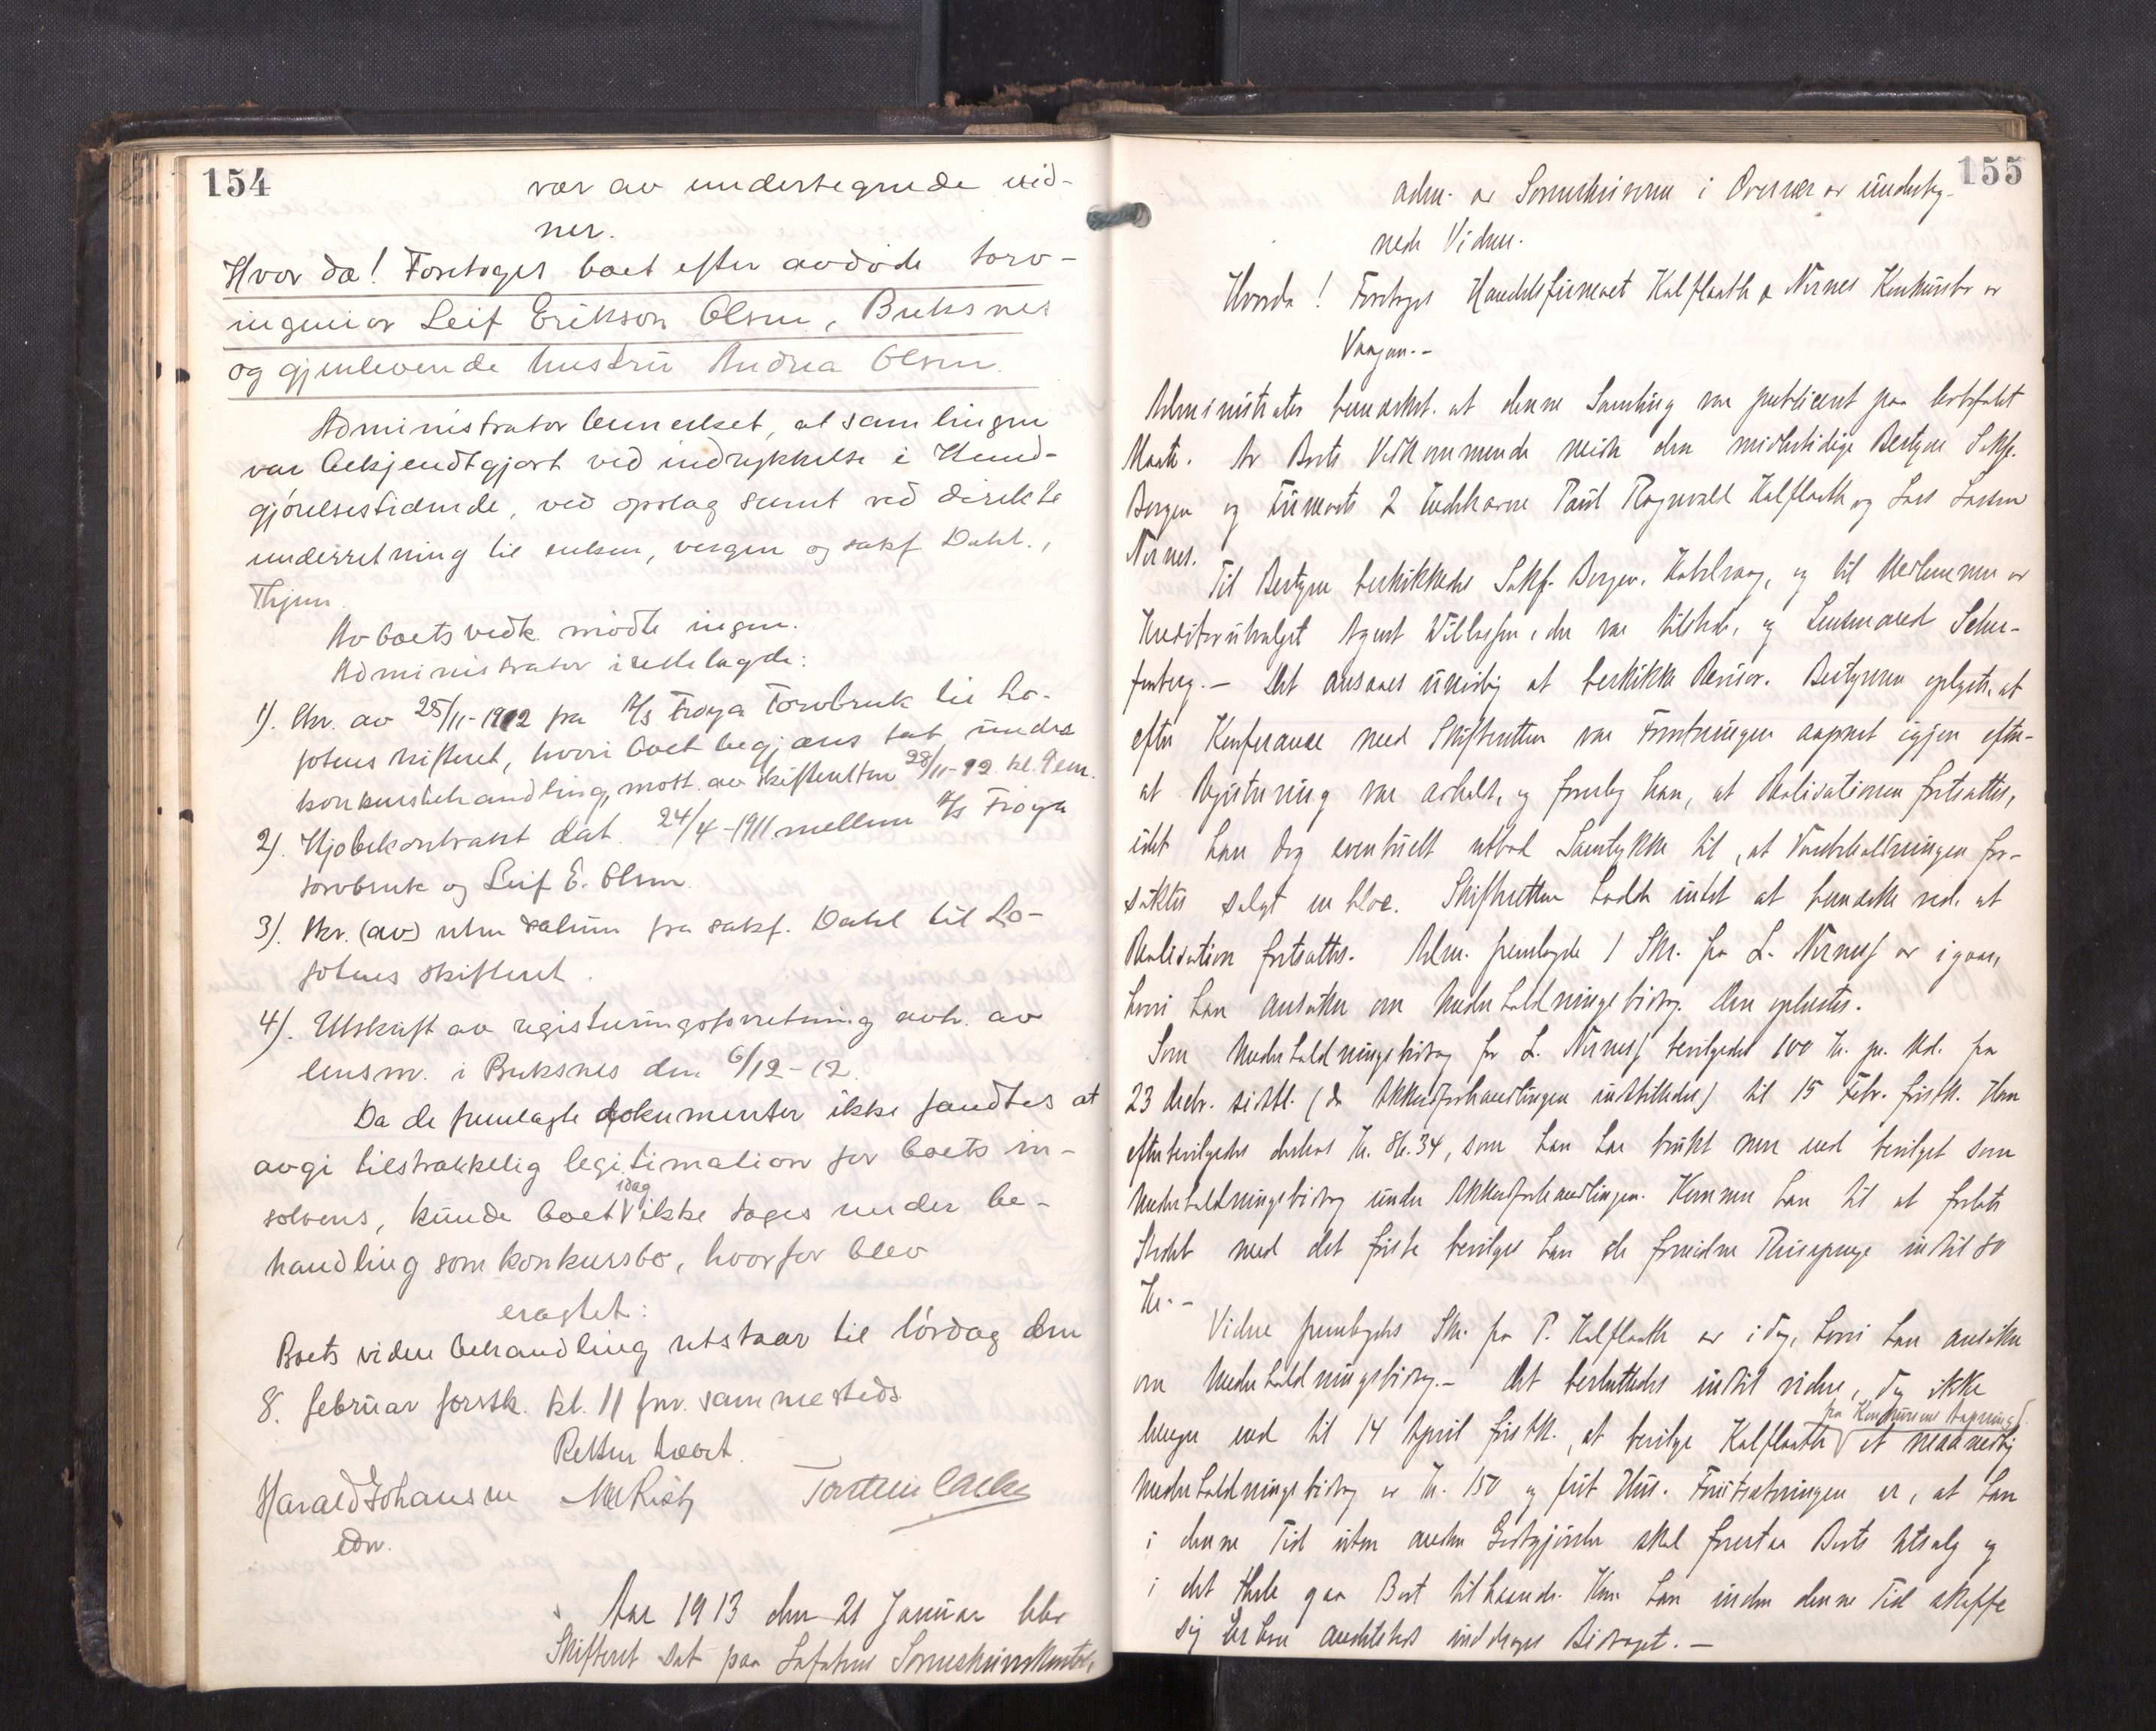 154
vær av undertegnede vid-
ner.
Hvor da! Foretoges boet efter avdøde torv-
ingeniør Leif Erikson Olsen, Buksnes
og gjenlevende hustru Andrea Olsen.
Administrator bemerket, at samlingen
var bekjendtgjort ved indrykkelse i Kund-
gjørelsestidende, ved opslag samt ved direkte
underretning til enken, vergen og sakf. Dahl,
Thjem.
Av boets vedk. mødte ingen.
Administrator irettelagde:
1). Skr. av 25/11-1912 fra A/S Frøya Torvbruk til Lo-
fotens skifteret, hvori boet begjæres tat under
konkursbehandling, mott. av skifteretten 28/11-12 kl. 9 em.
2). Kjøbekontrakt dat. 24/4-1911 mellem A/S Frøya
torvbruk og Leif E. Olsen.
3). Skr. (av) uten datum fra sakf. Dahl til Lo-
fotens skifteret.
4). Utskrift av registreringsforretning avh. av
lensm. i Buksnes den 6/12-12.
Da de fremlagte dokumenter ikke fandtes at
avgi tilstrækkelig legitimation for boets in-
solvens, kunde boet idag ikke tages under be-
handling som konkursbo, hvorfor blev
eragtet:
Boets videre behandling utstaar til lørdag den
8. februar førstk. kl. 11 fm. sammesteds
Retten hævet.
Harald Johansen
edv.
Aar 1913 den 21 Januar blev
Skifteret sat paa Lofotens Sorenskriverkontor,
155
adm. av Sorenskriveren i Overvær av underteg-
nede Vidner.
Hvorda! Foretoges Handelsfirmaet Kalflaath & Nirnes Konkursbo av
Vaagan.-
Administrator bemærket, at denne Samling var publiceret paa lovbefalt
Maate. Av Boets Vedkommende mødte den midlertidige Bestyrer Sakf.
Borgen og Firmaets 2 Indehavere Paul Ragnvald Kalflaath og Lars Larsen
Nirnes.
Til Bestyrer beskikkedes Sakf. Borgen, Kabelvaag, og til Medlemmer av
Kreditorutvalget Agent Willassen, der var tilstede, og Lensmand Schar-
fenberg.- Det ansaaes unødig at beskikke Revisor. Bestyreren oplyste, at
efter Konferanse med Skifteretten var Forretningen aapnet igjen efter-
at Registrering var avholdt, og foreslog han, at Realisationen fortsattes,
idet han dog eventuelt utbad Samtykke til, at Varebeholdningen for-
søktes solgt en bloc. Skifteretten hadde intet at bemerke ved, at
Realisation fortsattes. Adm. fremlagde 1 Skr. fra L. Nirnes av igaar,
hvori han ansøker om Underholdningsbidrag. Den oplæstes.
Som Underholdningsbidrag for L. Nirnes bevilgedes 100 Kr. pr. Md. fra
23 Decbr. sidstl. (da Akkordforhandlingen indstilledes) til 15 Febr. førstk. Han
efterbevilgedes derhos Kr. 86.34, som han har brukt mer end bevilget som
Underholdningsbidrag under Akkordforhandlingen. Kommer han til at forlate
Stedet med det første bevilges han de fornødne Reisepenge indtil 80
Kr.-
Videre fremlagdes Skr. fra P. Kalflaath av idag, hvori han ansøker
om Underholdningsbidrag.- Det besluttedes indtil videre, dog ikke
længer end til 14 April førstk., at bevilge Kalflaath fra Konkursens Aapning et maanedlig
Underholdningsbidrag av Kr. 150 og frit Hus. Forutsætningen er, at han
i denne Tid uten anden Godtgjørelse skal forestaa Boets Utsalg og
i det Hele gaa Boet tilhaande. Kan han inden denne Tid skaffe
sig Erhverv andetsteds inddrages Bidraget.-